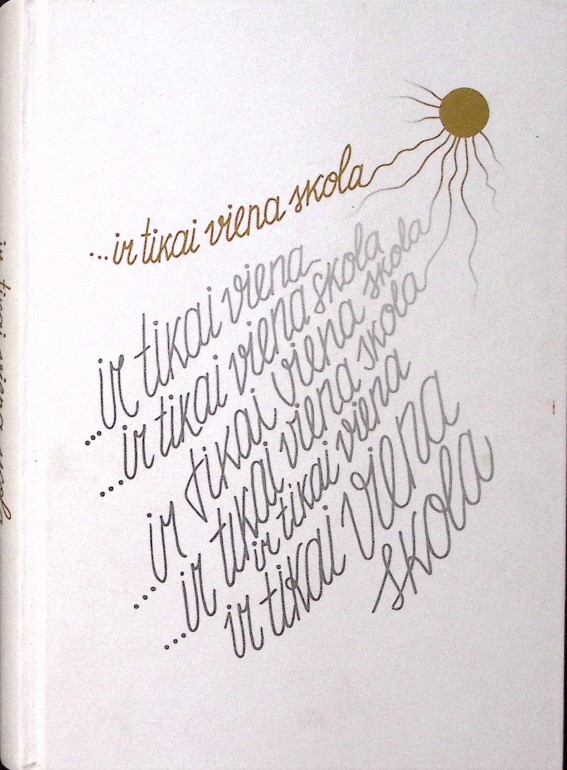 ...ir tikai viena skola
...ir tikai viena
...ir tikai viena skola
ir tikai viena skola
...ir tikai viena skola
...ir tikai viena
ir tikai viena
skola
ir tikai viena skola